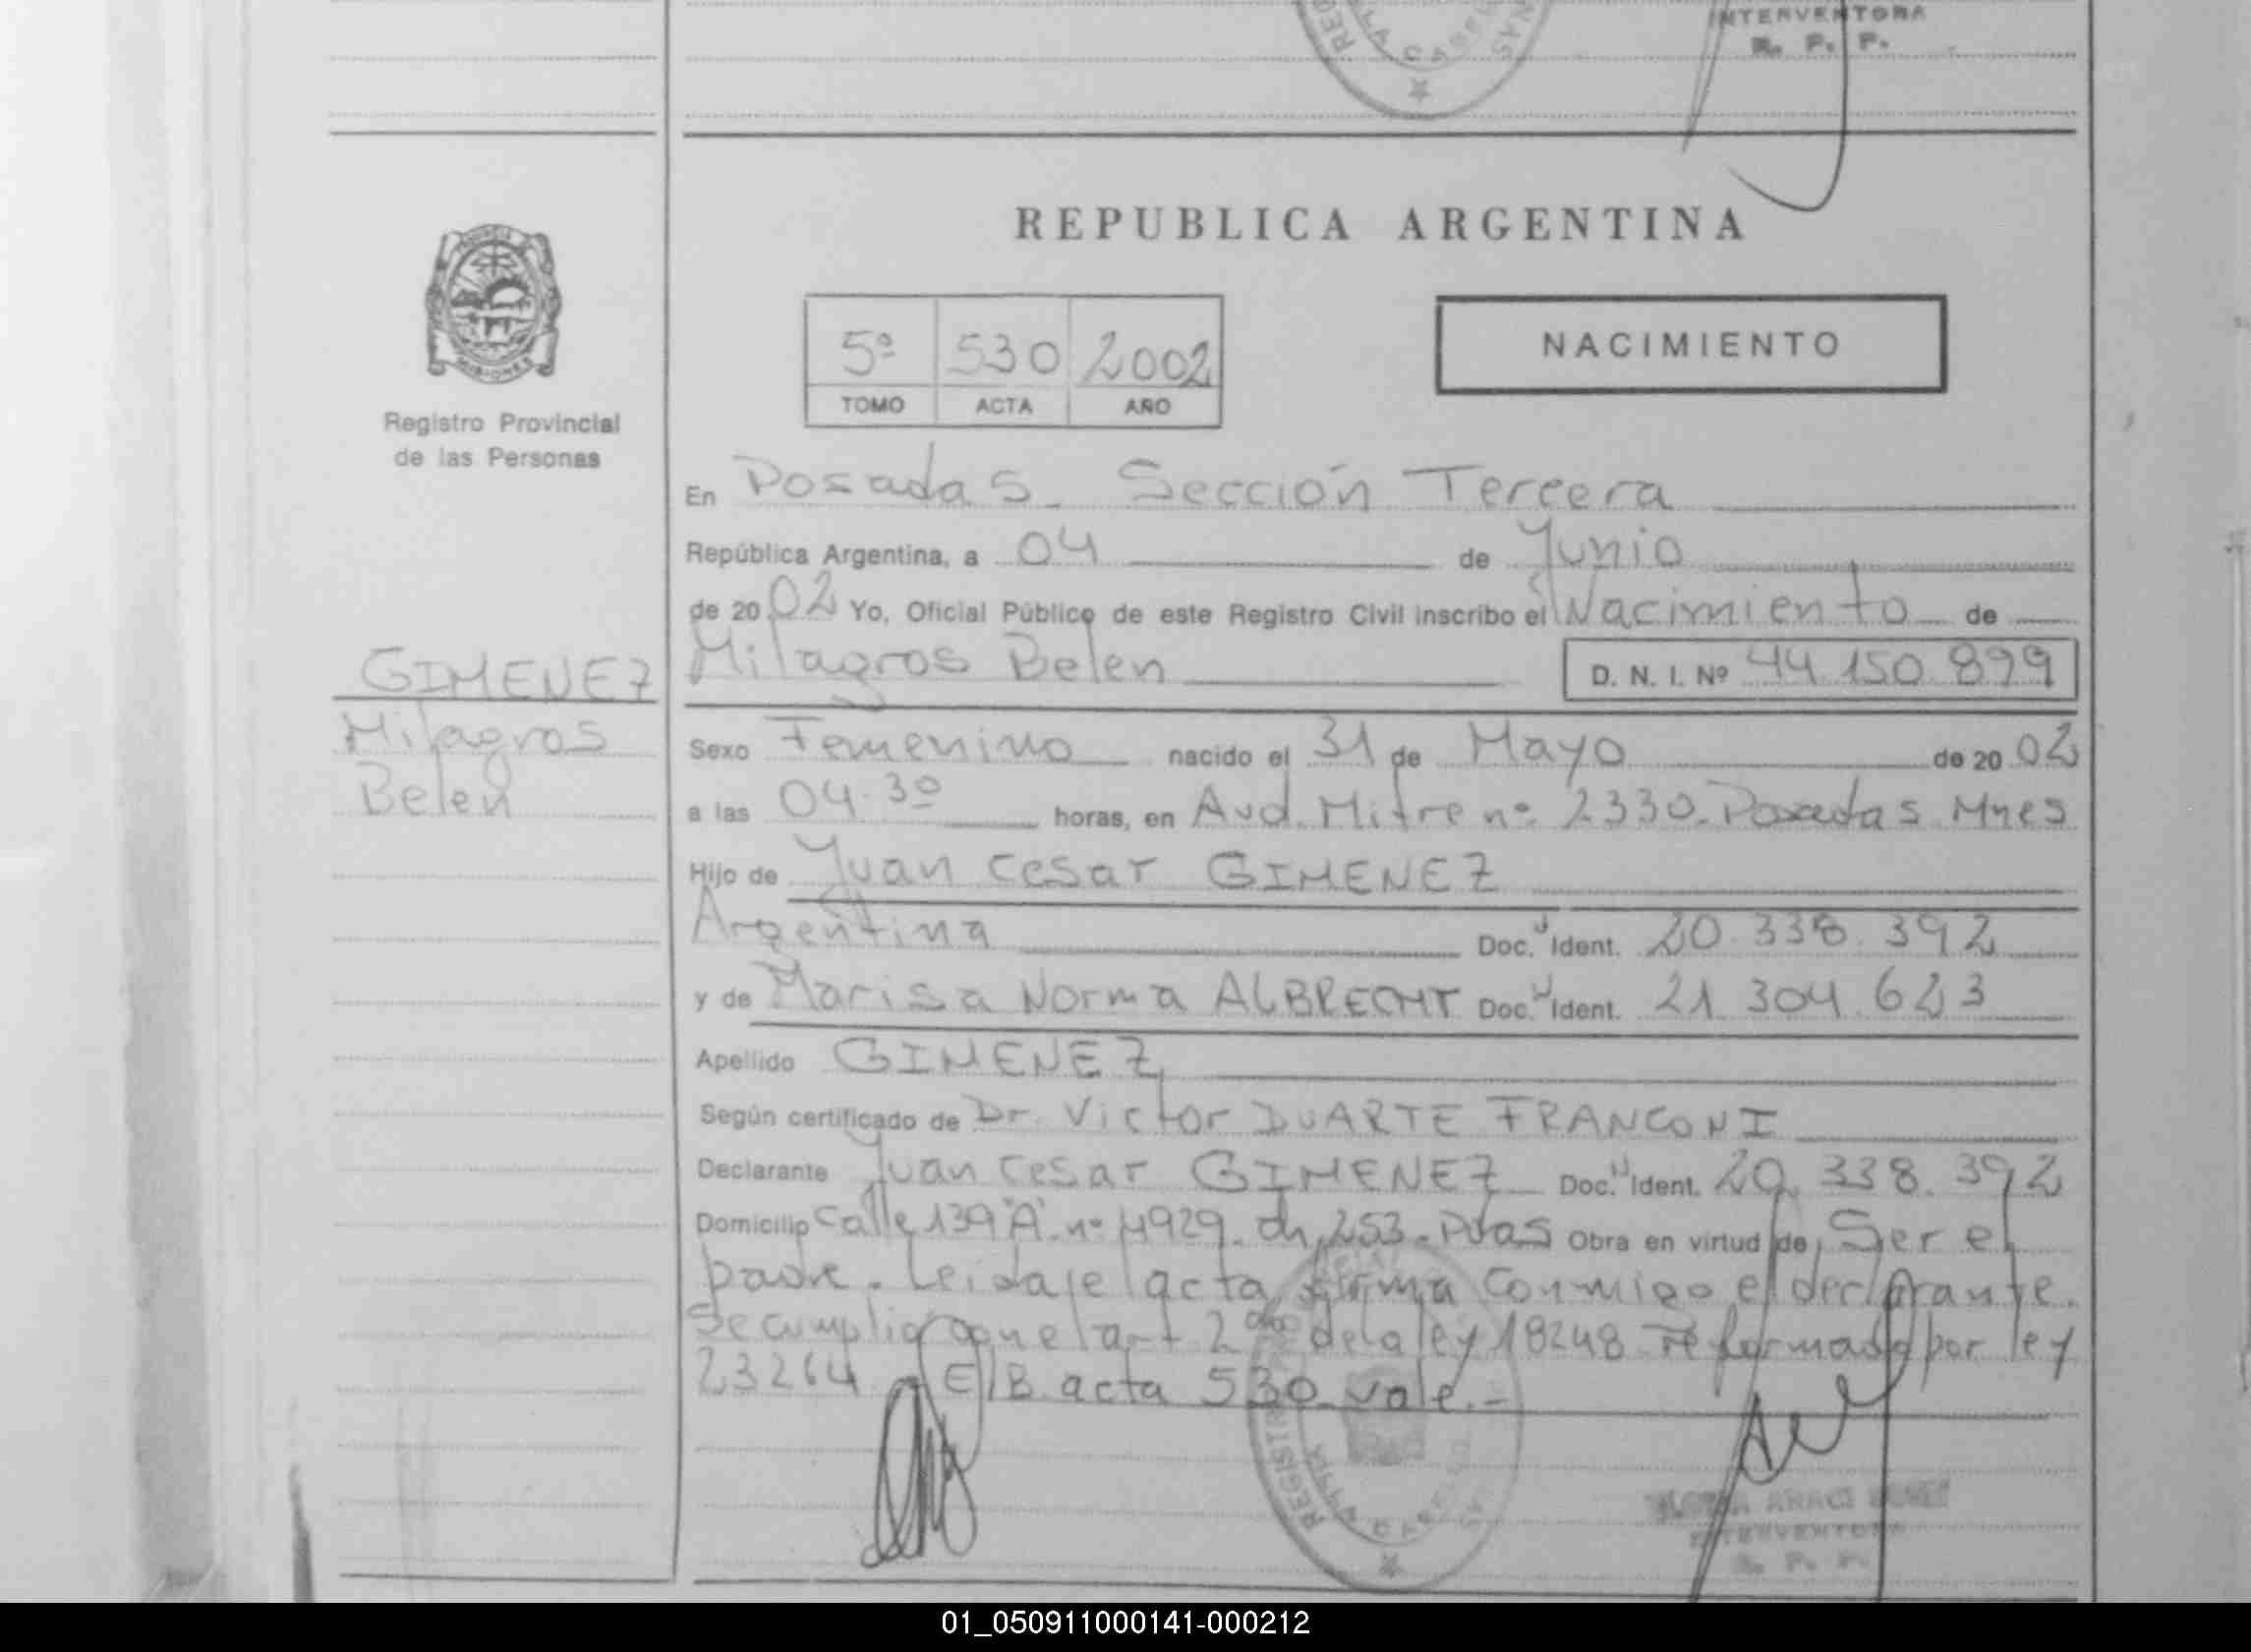 INTERVENTORA
R. P. P.
REPUBLICA ARGENTINA
MISIONES
Registro Provincial
de las Personas
5º 530 2002
TOMO ACTA AÑO
NACIMIENTO
En Posadas. Sección Tercera
República Argentina, a 04 de Junio
de 2002 Yo, Oficial Público de este Registro Civil inscribo el Nacimiento de
GIMENEZ
Milagros
Belen
Milagros Belen D. N. I. Nº 44 150 899
Sexo Femenino nacido el 31 de Mayo de 2002
a las 04.30 horas, en Avd. Mitre nº 2330. Posadas Mnes
Hijo de Juan Cesar GIMENEZ
Argentina Doc. Ident. 20.338.392
y de Marisa Norma ALBRECHT Doc. Ident. 21 304.623
Apellido GIMENEZ
Según certificado de Dr. Victor DUARTE FRANCONI
Declarante Juan Cesar GIMENEZ Doc. Ident. 20. 338. 392
Domicilio Calle 139 "A" nº 4929. ch, 253. Pdas Obra en virtud de Ser el
padre. Leidale acta firma conmigo el declarante.
Se cumplio con el art 2do de la ley 18248 reformado por ley
23264 E/B acta 530 vale.-
INTERVENTORA
R. P. P.
01_050911000141-000212